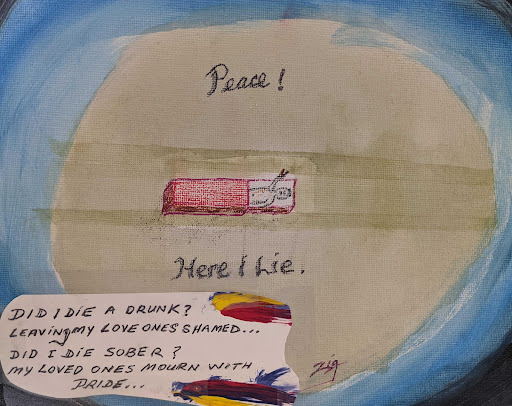 Peace!
Here I Lie.
DID I DIE A DRUNK?
LEAVING MY LOVE ONES SHAMED...
DID I DIE SOBER?
MY LOVED ONES MOURN WITH
PRIDE...
zig